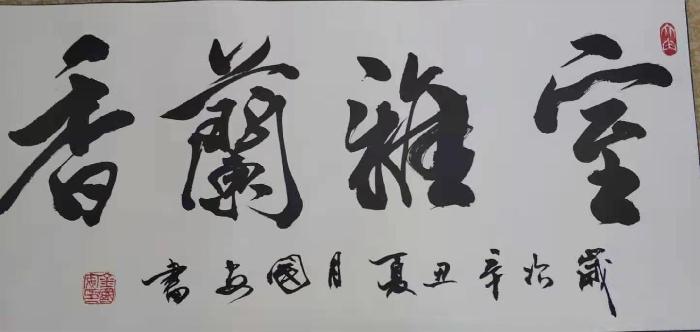 室雅蘭香
歲於辛丑夏月國安書